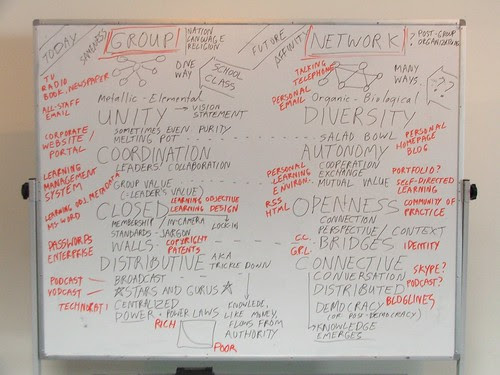 TODAY
SAMENESS?
GROUP
NATION
LANGUAGE
RELIGION
TV
RADIO
BOOK, NEWSPAPER
ALL-STAFF
EMAIL
ONE
WAY
SCHOOL
CLASS
Metallic - Elemental
UNITY → VISION
STATEMENT
CORPORATE
WEBSITE/
PORTAL
SOMETIMES EVEN PURITY
MELTING POT
COORDINATION
LEADERS COLLABORATION
LEARNING
MANAGEMENT
SYSTEM
GROUP VALUE
(=LEADER'S VALUE)
LEARNING OBJ. METADATA
MS-WORD
LEARNING OBJECTIVE
LEARNING DESIGN
CLOSED
MEMBERSHIP IN-CAMERA
LOCK-IN
STANDARDS - JARGON
WALLS
COPYRIGHT
PATENTS
PASSWORDS
ENTERPRISE
DISTRIBUTIVE AKA
TRICKLE DOWN
PODCAST
VODCAST
TECHNORATI
BROADCAST
STARS AND GURUS
CENTRALIZED
POWER - POWER LAWS
RICH
POOR
KNOWLEDGE,
LIKE MONEY,
FLOWS FROM
AUTHORITY
FUTURE
AFFINITY
NETWORK
? POST-GROUP
ORGANIZATIONS
TALKING
TELEPHONE
PERSONAL
EMAIL
MANY
WAYS
???
Organic - Biological
DIVERSITY
SALAD BOWL
PERSONAL
HOMEPAGE
BLOG
AUTONOMY
COOPERATION
EXCHANGE
MUTUAL VALUE
PERSONAL
LEARNING
ENVIRON.
PORTFOLIO?
SELF-DIRECTED
LEARNING
RSS
HTML
OPENNESS
COMMUNITY OF
PRACTICE
CONNECTION
PERSPECTIVE/CONTEXT
C.C.
GPL
BRIDGES
IDENTITY
CONNECTIVE
CONVERSATION
SKYPE?
PODCAST?
DISTRIBUTED
BLOGLINES
DEMOCRACY
(OR POST-DEMOCRACY)
KNOWLEDGE
EMERGES